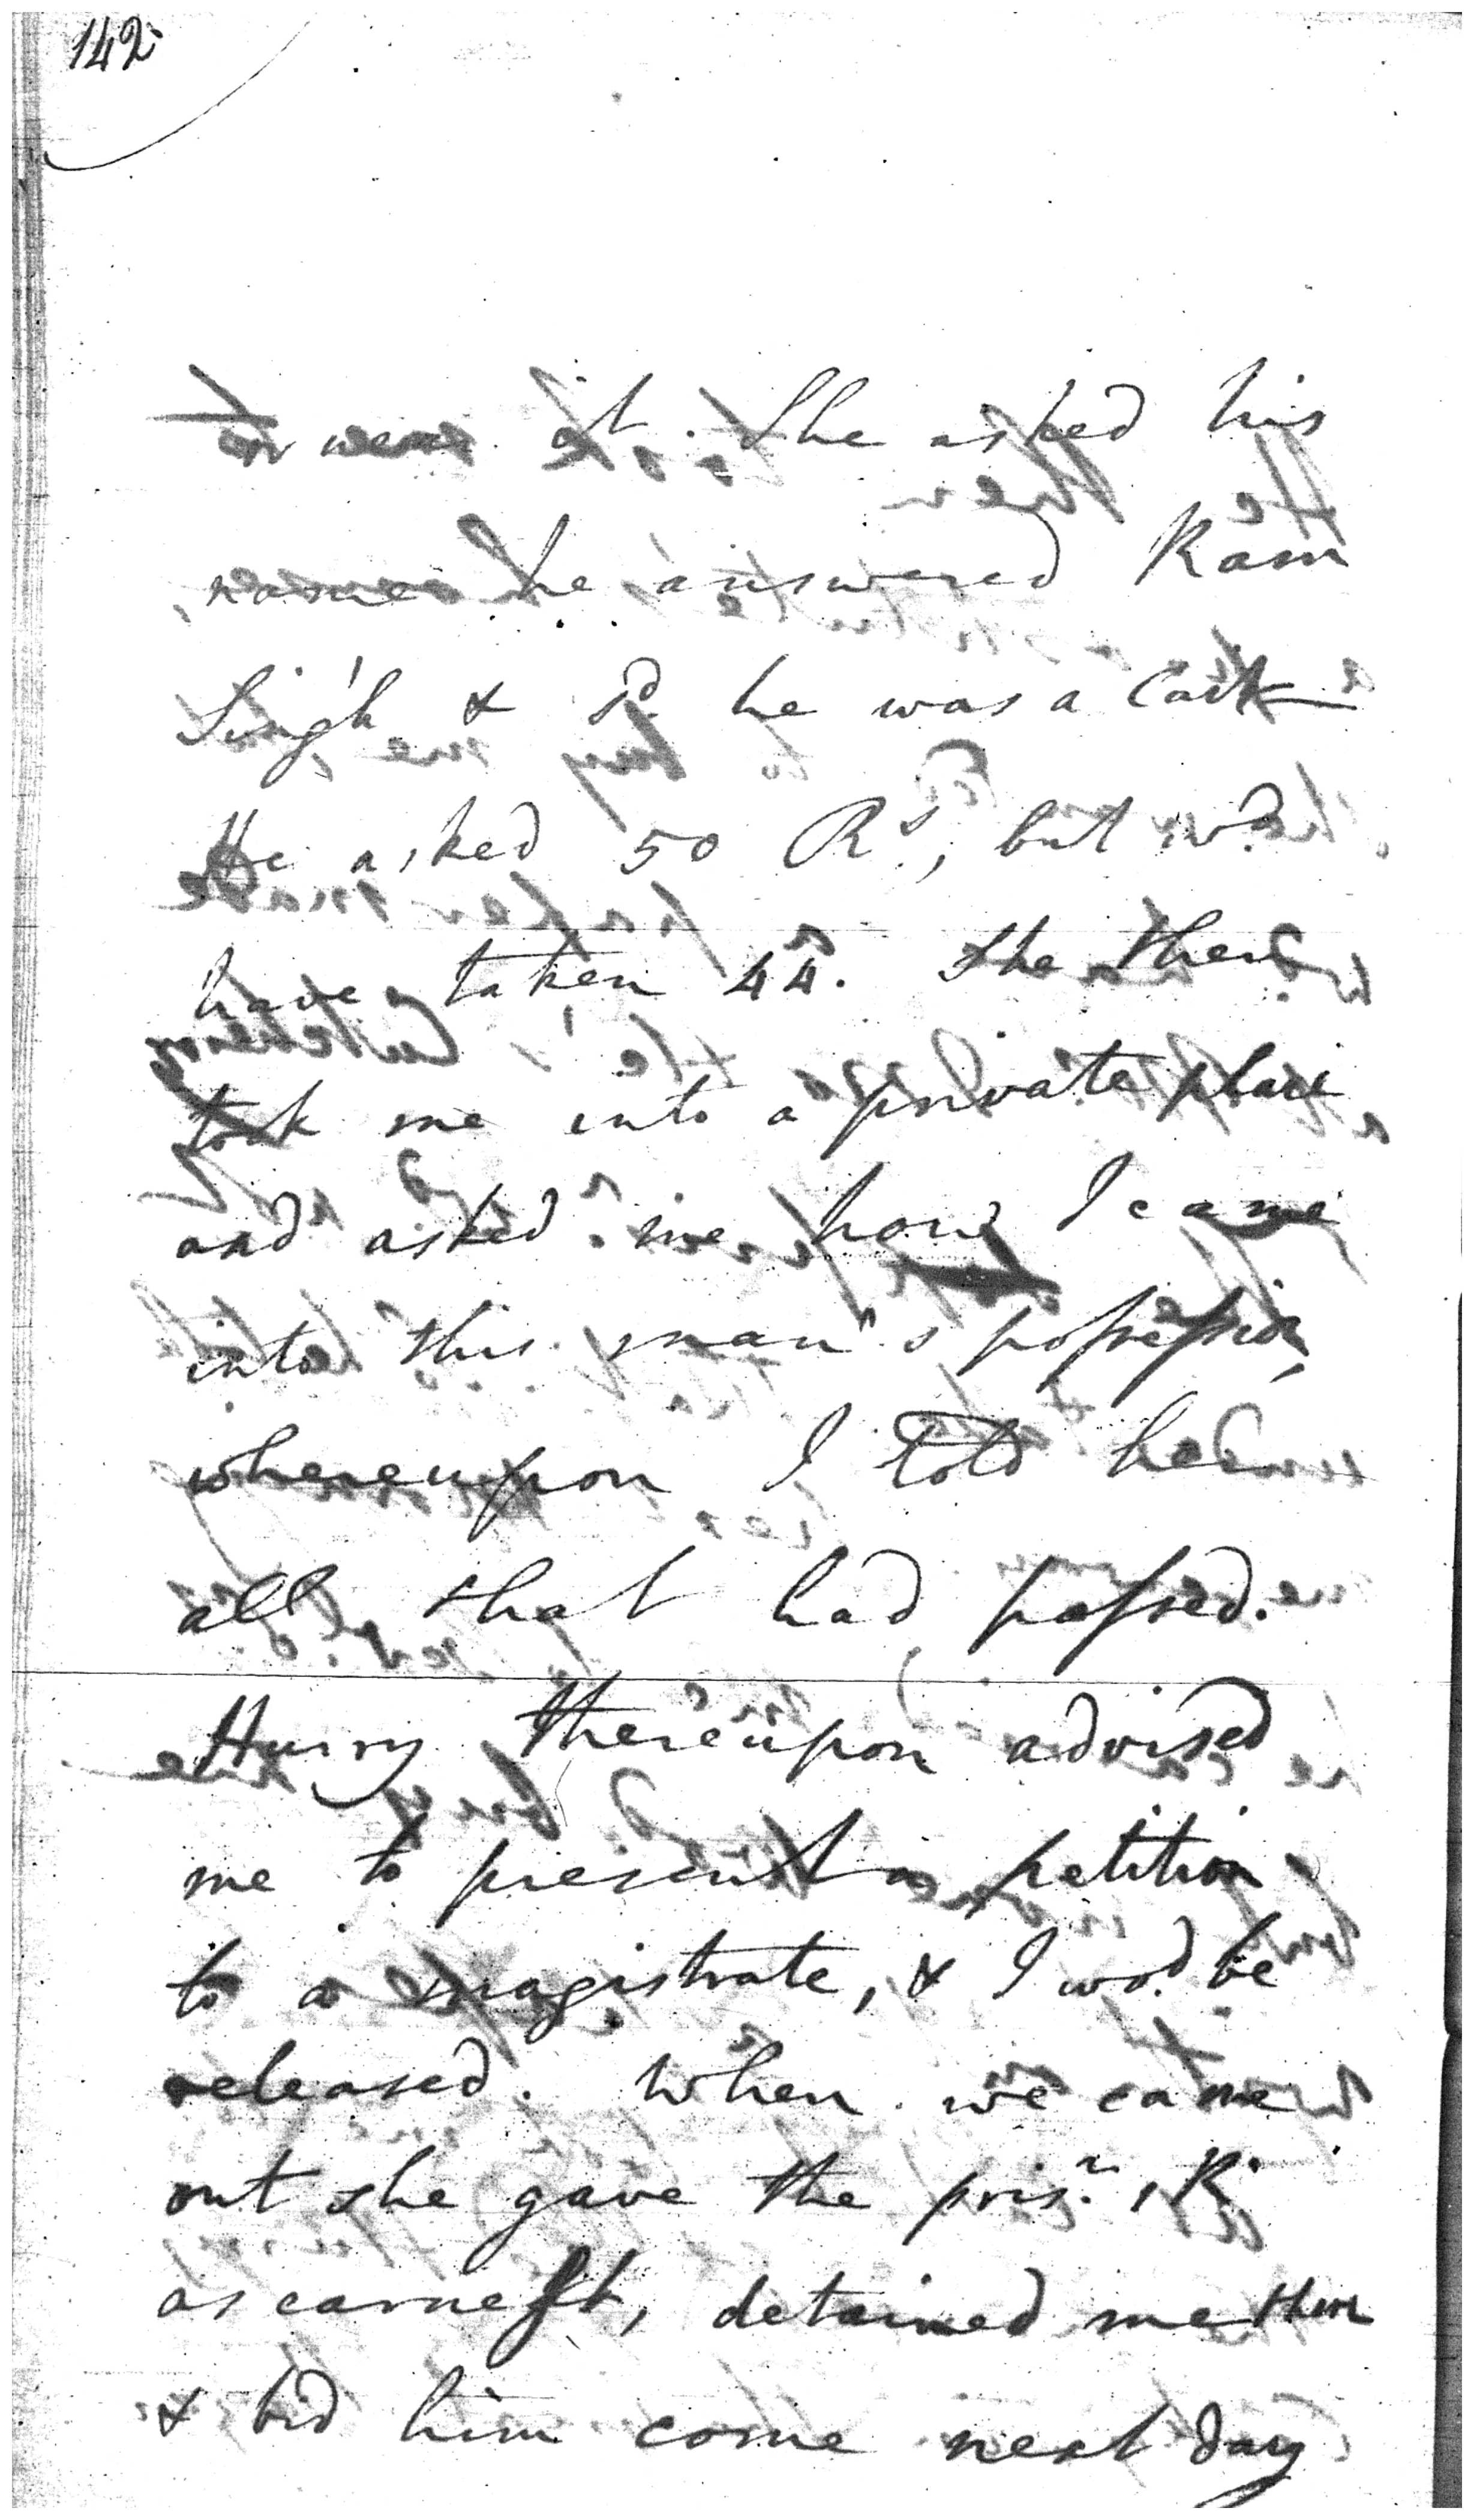 142
went it. She asked his
name he answered Ram
Singh & sd. he was a
He asked 50 Rs, but wd.
have taken 44. She then
took me into a private place
and asked me how I came
into this man's possession,
whereupon I told her
all that had passed.
Hurry thereupon advised
me to present a petition
to a magistrate, & I wod. be
released. When we came
out she gave the prisr. 1 R.
as earnest, detained me there
& bid him come next day